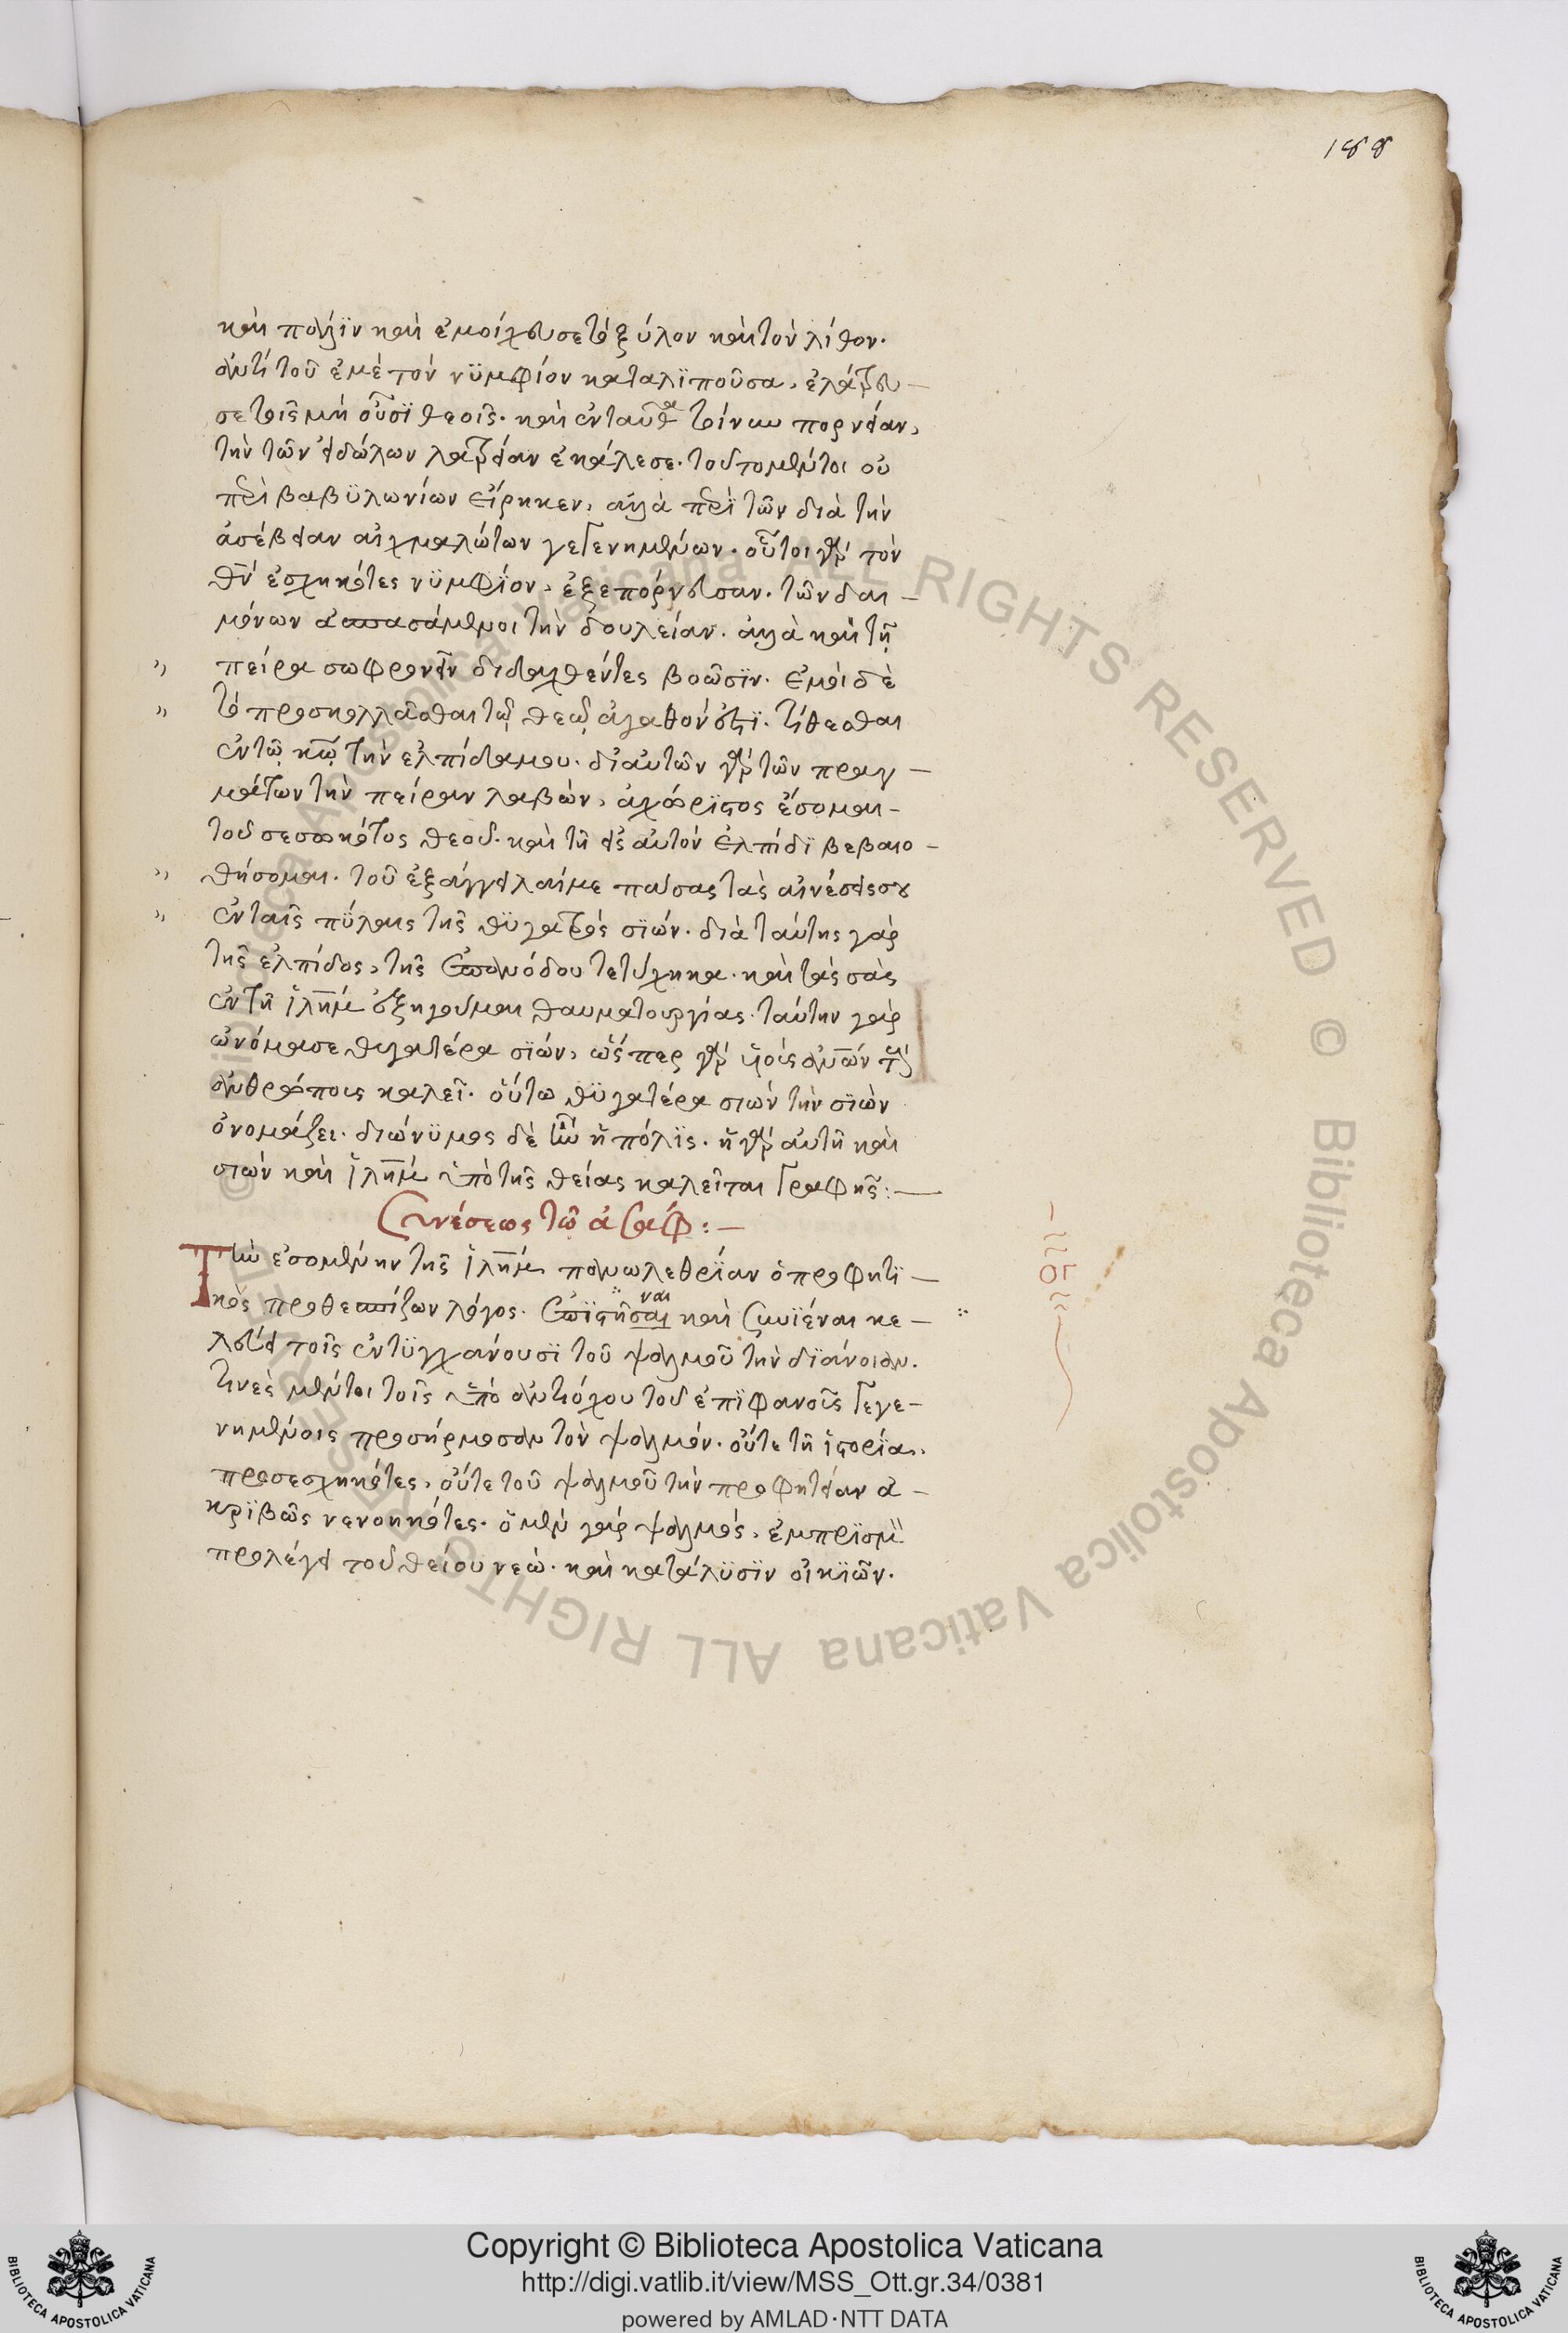 188
καὶ πάλϊν καὶ ἐμοίχευσε τὸ ξύλον καὶ τὸν λίθον·
ἀντὶ τοῦ ἐμὲ τὸν νϋμφίον καταλϊποῦσα, ἐλάτρευ–
σε τοῖς μὴ οὖσϊ θεοῖς· καὶ ἐνταῦθα τοίνυν πορνείαν,
τὴν τῶν εἰδώλων λατρείαν ἐκάλεσε· τοῦτο μέντοι οὐ
περὶ βαβϋλωνίων εἴρηκεν, ἀλλὰ περὶ τῶν διὰ τὴν
ἀσέβειαν αἰχμαλώτων γεγενημένων· οὗτοι γὰρ τὸν
θν̄ ἐσχηκότες νϋμφίον, ἐξεπόρνευσαν· τῶν δαι–
μόνων ἀσπασάμενοι τὴν δουλείαν· ἀλλὰ καὶ τῇ
" πείρα σωφρονεῖν διδαχθέντες βοῶσϊν· ἐμοὶ δὲ
" τὸ προσκολλᾶσθαι τῷ θεῷ ἀγαθόν ἐστϊ· τίθεσθαι
ἐν τῷ κω̄ τὴν ἐλπίδα μου· δι' αὐτῶν γὰρ τῶν πραγ–
μάτων τὴν πείραν λαβὼν, ἀχώρϊστος ἔσομαι–
τοῦ σεσωκότος θεοῦ· καὶ τῇ εἰς αὐτὸν ἐλπίδϊ βεβαιο–
" θήσομαι· τοῦ ἐξαγγεῖλαί με πάσας τὰς αἰνέσεις σου
" ἐν ταῖς πύλαις τῆς θϋγατρὸς σϊών· διὰ ταύτης γὰρ
τῆς ἐλπίδος, τῆς ἐπανόδου τετύχηκα· καὶ τὰς σὰς
ἐν τῇ ἱλη̄μ ἐξηγοῦμαι θαυματουργίας· ταύτην γὰρ
ὠνόμασε θυγατέρα σϊών, ὥσπερ γὰρ υἱοὺς ἀνων̄ τοὺς
ἀνθρώπους καλεῖ· οὕτω θϋγατέρα σιών τὴν σϊὼν
ὀνομάζει· διώνϋμος δὲ ἦν ἡ πόλϊς· ἡ γὰρ αὐτὴ καὶ
σιὼν καὶ ἱλη̄μ ὑπὸ τῆς θείας καλεῖται γραφῆς:—
Συνέσεως τῶ ἀσάφ:—
Τὴν ἐσομένην τῆς ἱλη̄μ πανωλεθρϊαν ὁ προφητϊ–
κὸς προθεσπίζων λόγος· ἐπϊστῆσαι ναι καὶ συνϊέναι κε–
λεύει τοῖς ἐντϋγχάνουσϊ τοῦ ψαλμοῦ τὴν δϊάνοιαν·
τινὲς μέντοι τοῖς ὑπὸ ἀντιόχου τοῦ ἐπϊφανοῦς γεγε–
νημένοις προσήρμοσαν τὸν ψαλμόν· οὔτε τῇ ἱστορϊα,
προσεσχηκότες, οὔτε τοῦ ψαλμοῦ τὴν προφητείαν ἀ–
κρϊβῶς νενοηκότες· ὁ μὲν γὰρ ψαλμὸς, ἐμπρϊσμὸν
προλέγει τοῦ θείου νεώ· καὶ κατάλϋσϊν οἰκϊῶν·
Copyright © Biblioteca Apostolica Vaticana
http://digi.vatlib.it/view/MSS_Ott.gr.34/0381
powered by AMLAD·NTT DATA